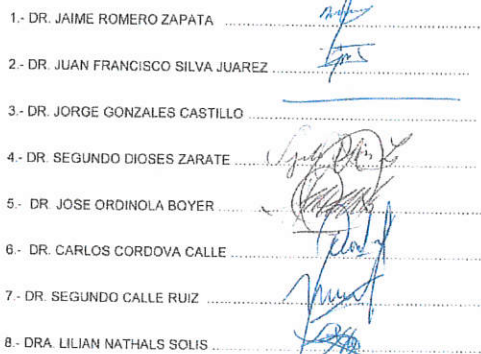 1.- DR. JAIME ROMERO ZAPATA ..........
2.- DR. JUAN FRANCISCO SILVA JUAREZ ..........
3.- DR. JORGE GONZALES CASTILLO ..........
4.- DR. SEGUNDO DIOSES ZARATE ..........
5.- DR. JOSE ORDINOLA BOYER ..........
6.- DR. CARLOS CORDOVA CALLE ..........
7.- DR. SEGUNDO CALLE RUIZ ..........
8.- DRA. LILIAN NATHALS SOLIS ..........